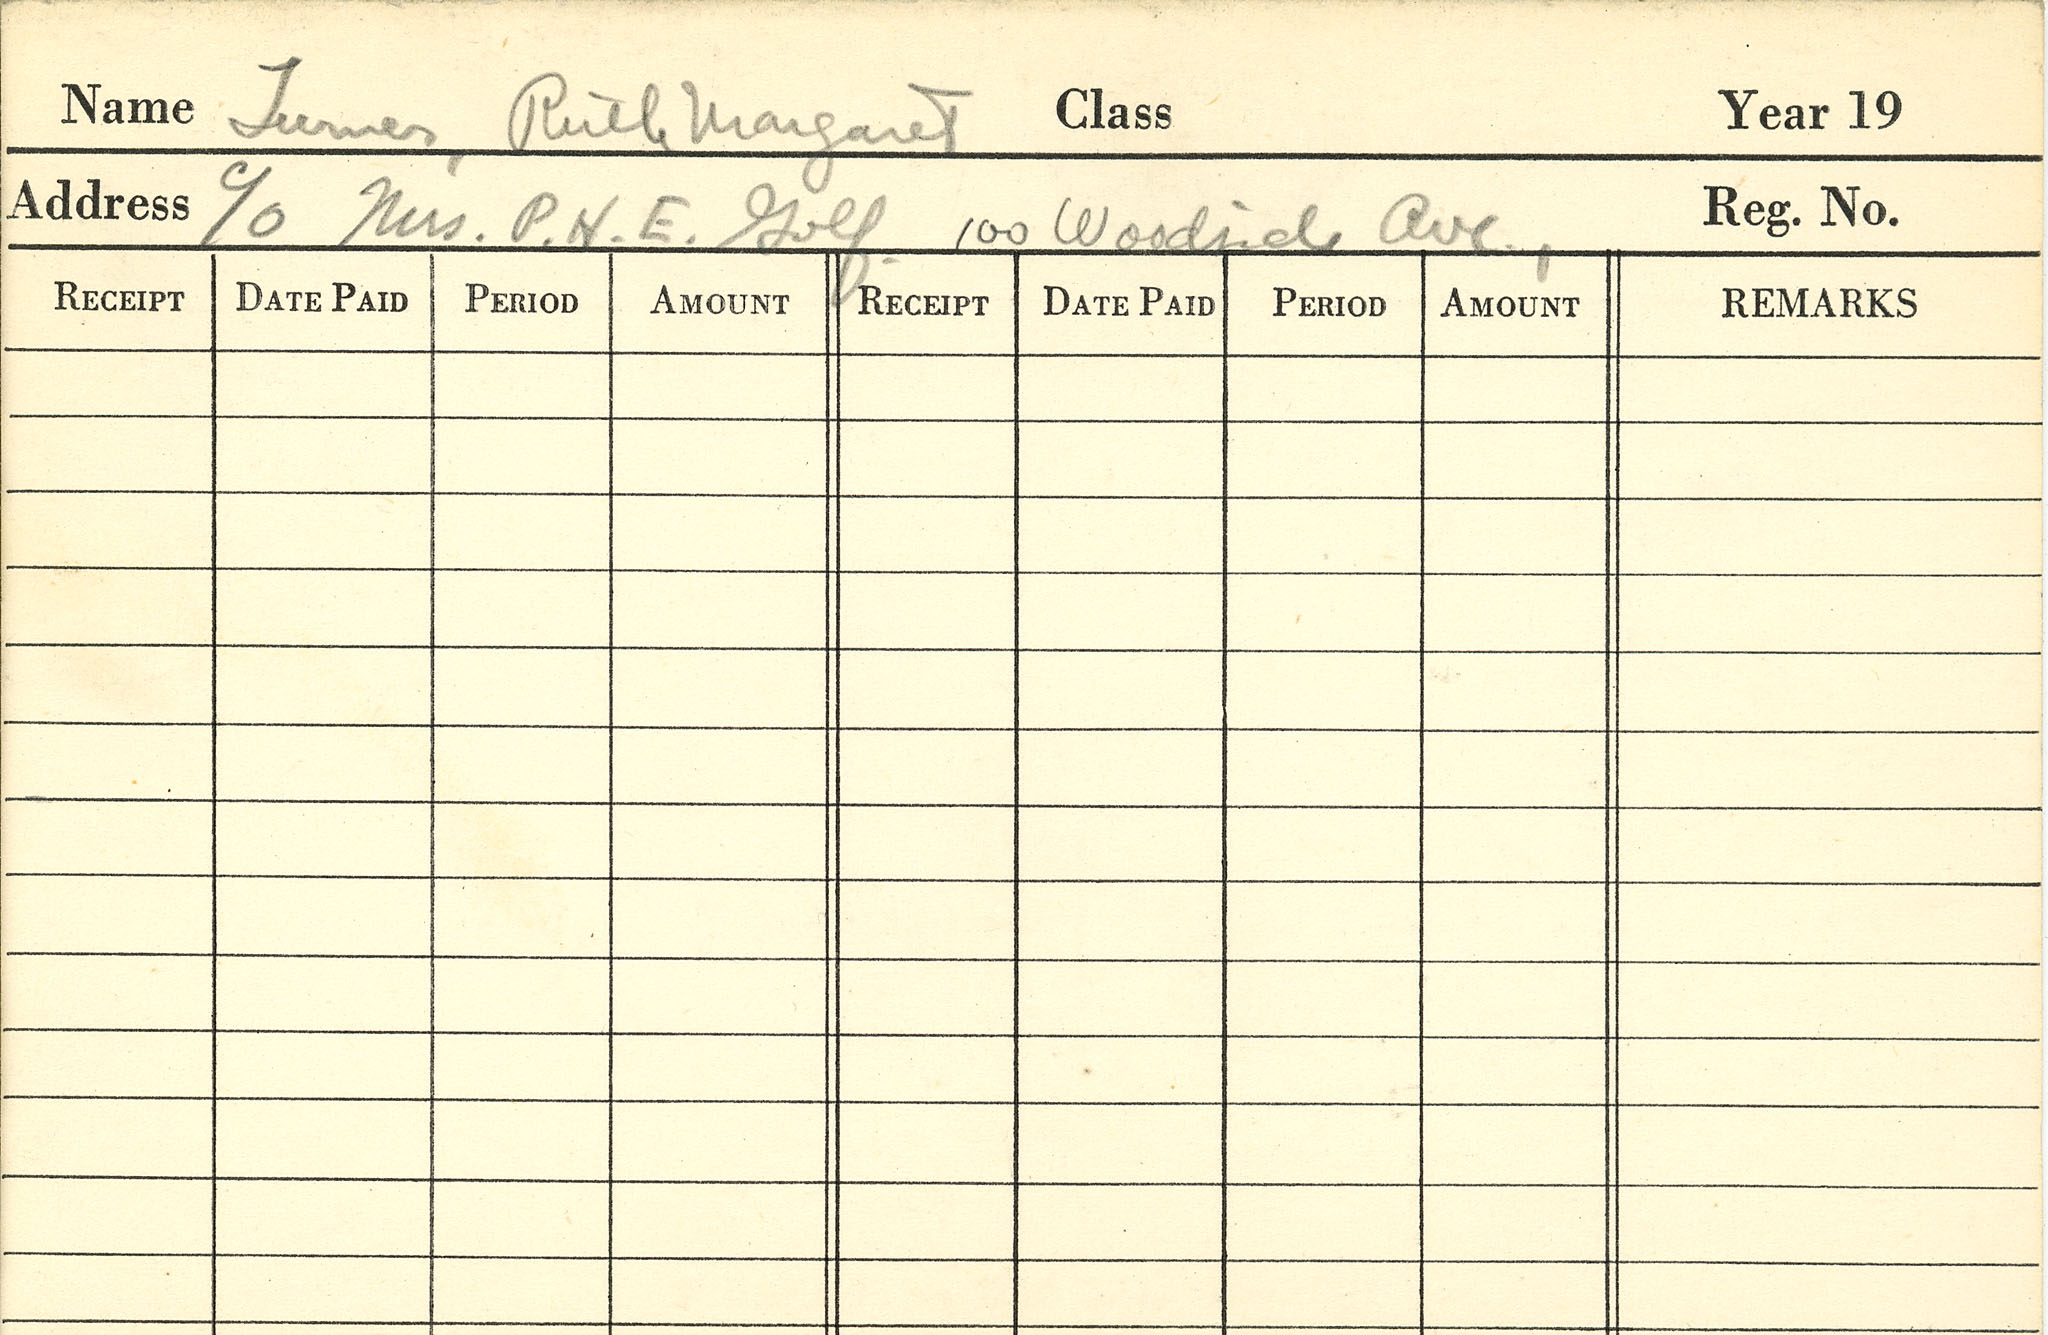 Name Turner, Ruth Margaret Class Year 19
Address c/o Mrs. P.H.E. Golf. 100 Woodside Ave.,  Reg. No.
RECEIPT DATE PAID PERIOD AMOUNT RECEIPT DATE PAID PERIOD AMOUNT REMARKS